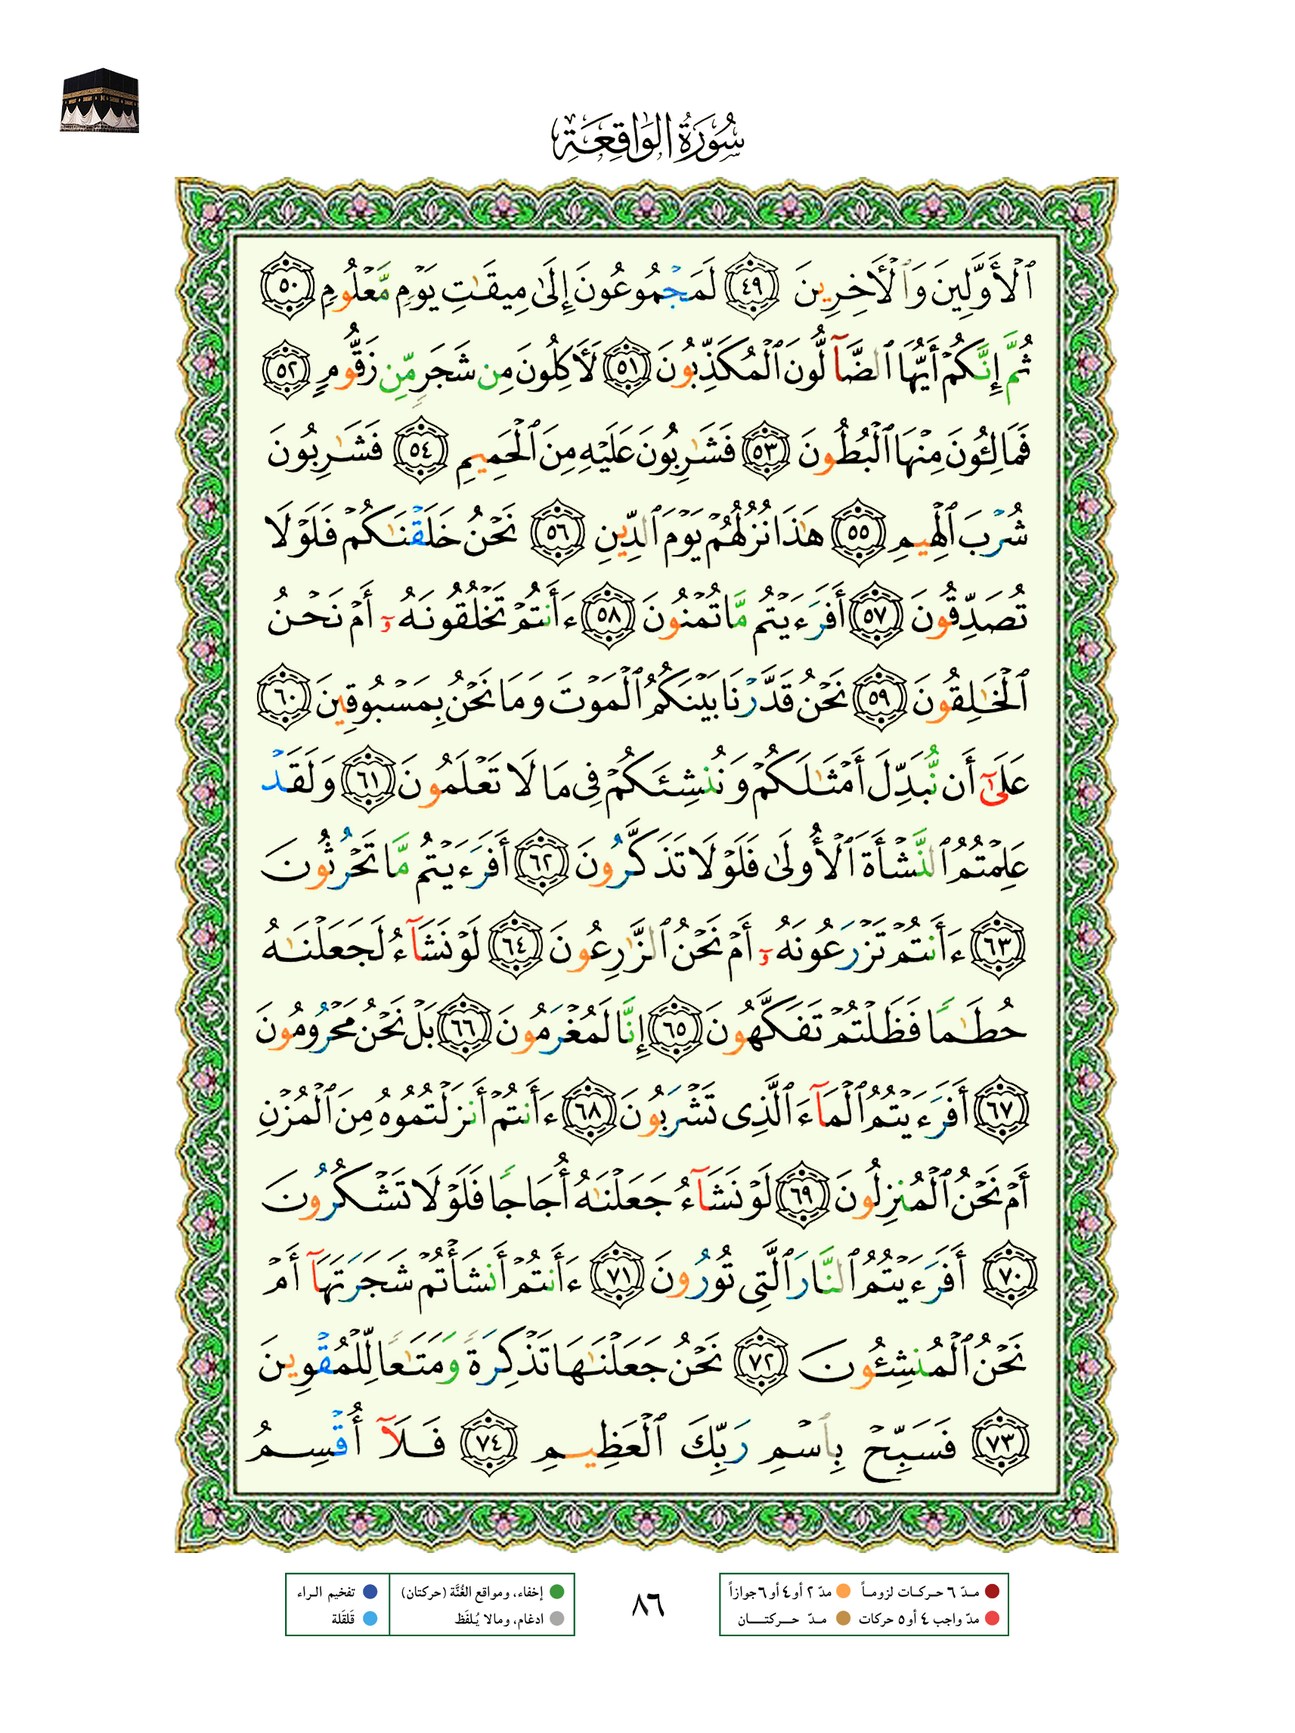 سُورَةُ الوَاقِعَةِ
ٱلۡأَوَّلِينَ وَٱلۡأٓخِرِينَ ٤٩ لَمَجۡمُوعُونَ إِلَىٰ مِيقَٰتِ يَوۡمٖ مَّعۡلُومٖ ٥٠
ثُمَّ إِنَّكُمۡ أَيُّهَا ٱلضَّآلُّونَ ٱلۡمُكَذِّبُونَ ٥١ لَأٓكِلُونَ مِن شَجَرٖ مِّن زَقُّومٖ ٥٢
فَمَالِـُٔونَ مِنۡهَا ٱلۡبُطُونَ ٥٣ فَشَٰرِبُونَ عَلَيۡهِ مِنَ ٱلۡحَمِيمِ ٥٤ فَشَٰرِبُونَ
شُرۡبَ ٱلۡهِيمِ ٥٥ هَٰذَا نُزُلُهُمۡ يَوۡمَ ٱلدِّينِ ٥٦ نَحۡنُ خَلَقۡنَٰكُمۡ فَلَوۡلَا
تُصَدِّقُونَ ٥٧ أَفَرَءَيۡتُم مَّا تُمۡنُونَ ٥٨ ءَأَنتُمۡ تَخۡلُقُونَهُۥٓ أَمۡ نَحۡنُ
ٱلۡخَٰلِقُونَ ٥٩ نَحۡنُ قَدَّرۡنَا بَيۡنَكُمُ ٱلۡمَوۡتَ وَمَا نَحۡنُ بِمَسۡبُوقِينَ ٦٠
عَلَىٰٓ أَن نُّبَدِّلَ أَمۡثَٰلَكُمۡ وَنُنشِئَكُمۡ فِي مَا لَا تَعۡلَمُونَ ٦١ وَلَقَدۡ
عَلِمۡتُمُ ٱلنَّشۡأَةَ ٱلۡأُولَىٰ فَلَوۡلَا تَذَكَّرُونَ ٦٢ أَفَرَءَيۡتُم مَّا تَحۡرُثُونَ
٦٣ ءَأَنتُمۡ تَزۡرَعُونَهُۥٓ أَمۡ نَحۡنُ ٱلزَّٰرِعُونَ ٦٤ لَوۡ نَشَآءُ لَجَعَلۡنَٰهُ
حُطَٰمٗا فَظَلۡتُمۡ تَفَكَّهُونَ ٦٥ إِنَّا لَمُغۡرَمُونَ ٦٦ بَلۡ نَحۡنُ مَحۡرُومُونَ
٦٧ أَفَرَءَيۡتُمُ ٱلۡمَآءَ ٱلَّذِي تَشۡرَبُونَ ٦٨ ءَأَنتُمۡ أَنزَلۡتُمُوهُ مِنَ ٱلۡمُزۡنِ
أَمۡ نَحۡنُ ٱلۡمُنزِلُونَ ٦٩ لَوۡ نَشَآءُ جَعَلۡنَٰهُ أُجَاجٗا فَلَوۡلَا تَشۡكُرُونَ
٧٠ أَفَرَءَيۡتُمُ ٱلنَّارَ ٱلَّتِي تُورُونَ ٧١ ءَأَنتُمۡ أَنشَأۡتُمۡ شَجَرَتَهَآ أَمۡ
نَحۡنُ ٱلۡمُنشِـُٔونَ ٧٢ نَحۡنُ جَعَلۡنَٰهَا تَذۡكِرَةٗ وَمَتَٰعٗا لِّلۡمُقۡوِينَ
٧٣ فَسَبِّحۡ بِٱسۡمِ رَبِّكَ ٱلۡعَظِيمِ ٧٤ فَلَآ أُقۡسِمُ
مـدّ ٦ حـركـات لزومـاً مدّ ٢ أو ٤ أو ٦ جوازاً
مدّ واجب ٤ أو ٥ حركات مـدّ حــركتــــان
٨٦
إخفاء، ومواقع الغُنَّة (حركتان) تفخيم الـراء
ادغام، ومالا يُـلفَظ قلقَلة